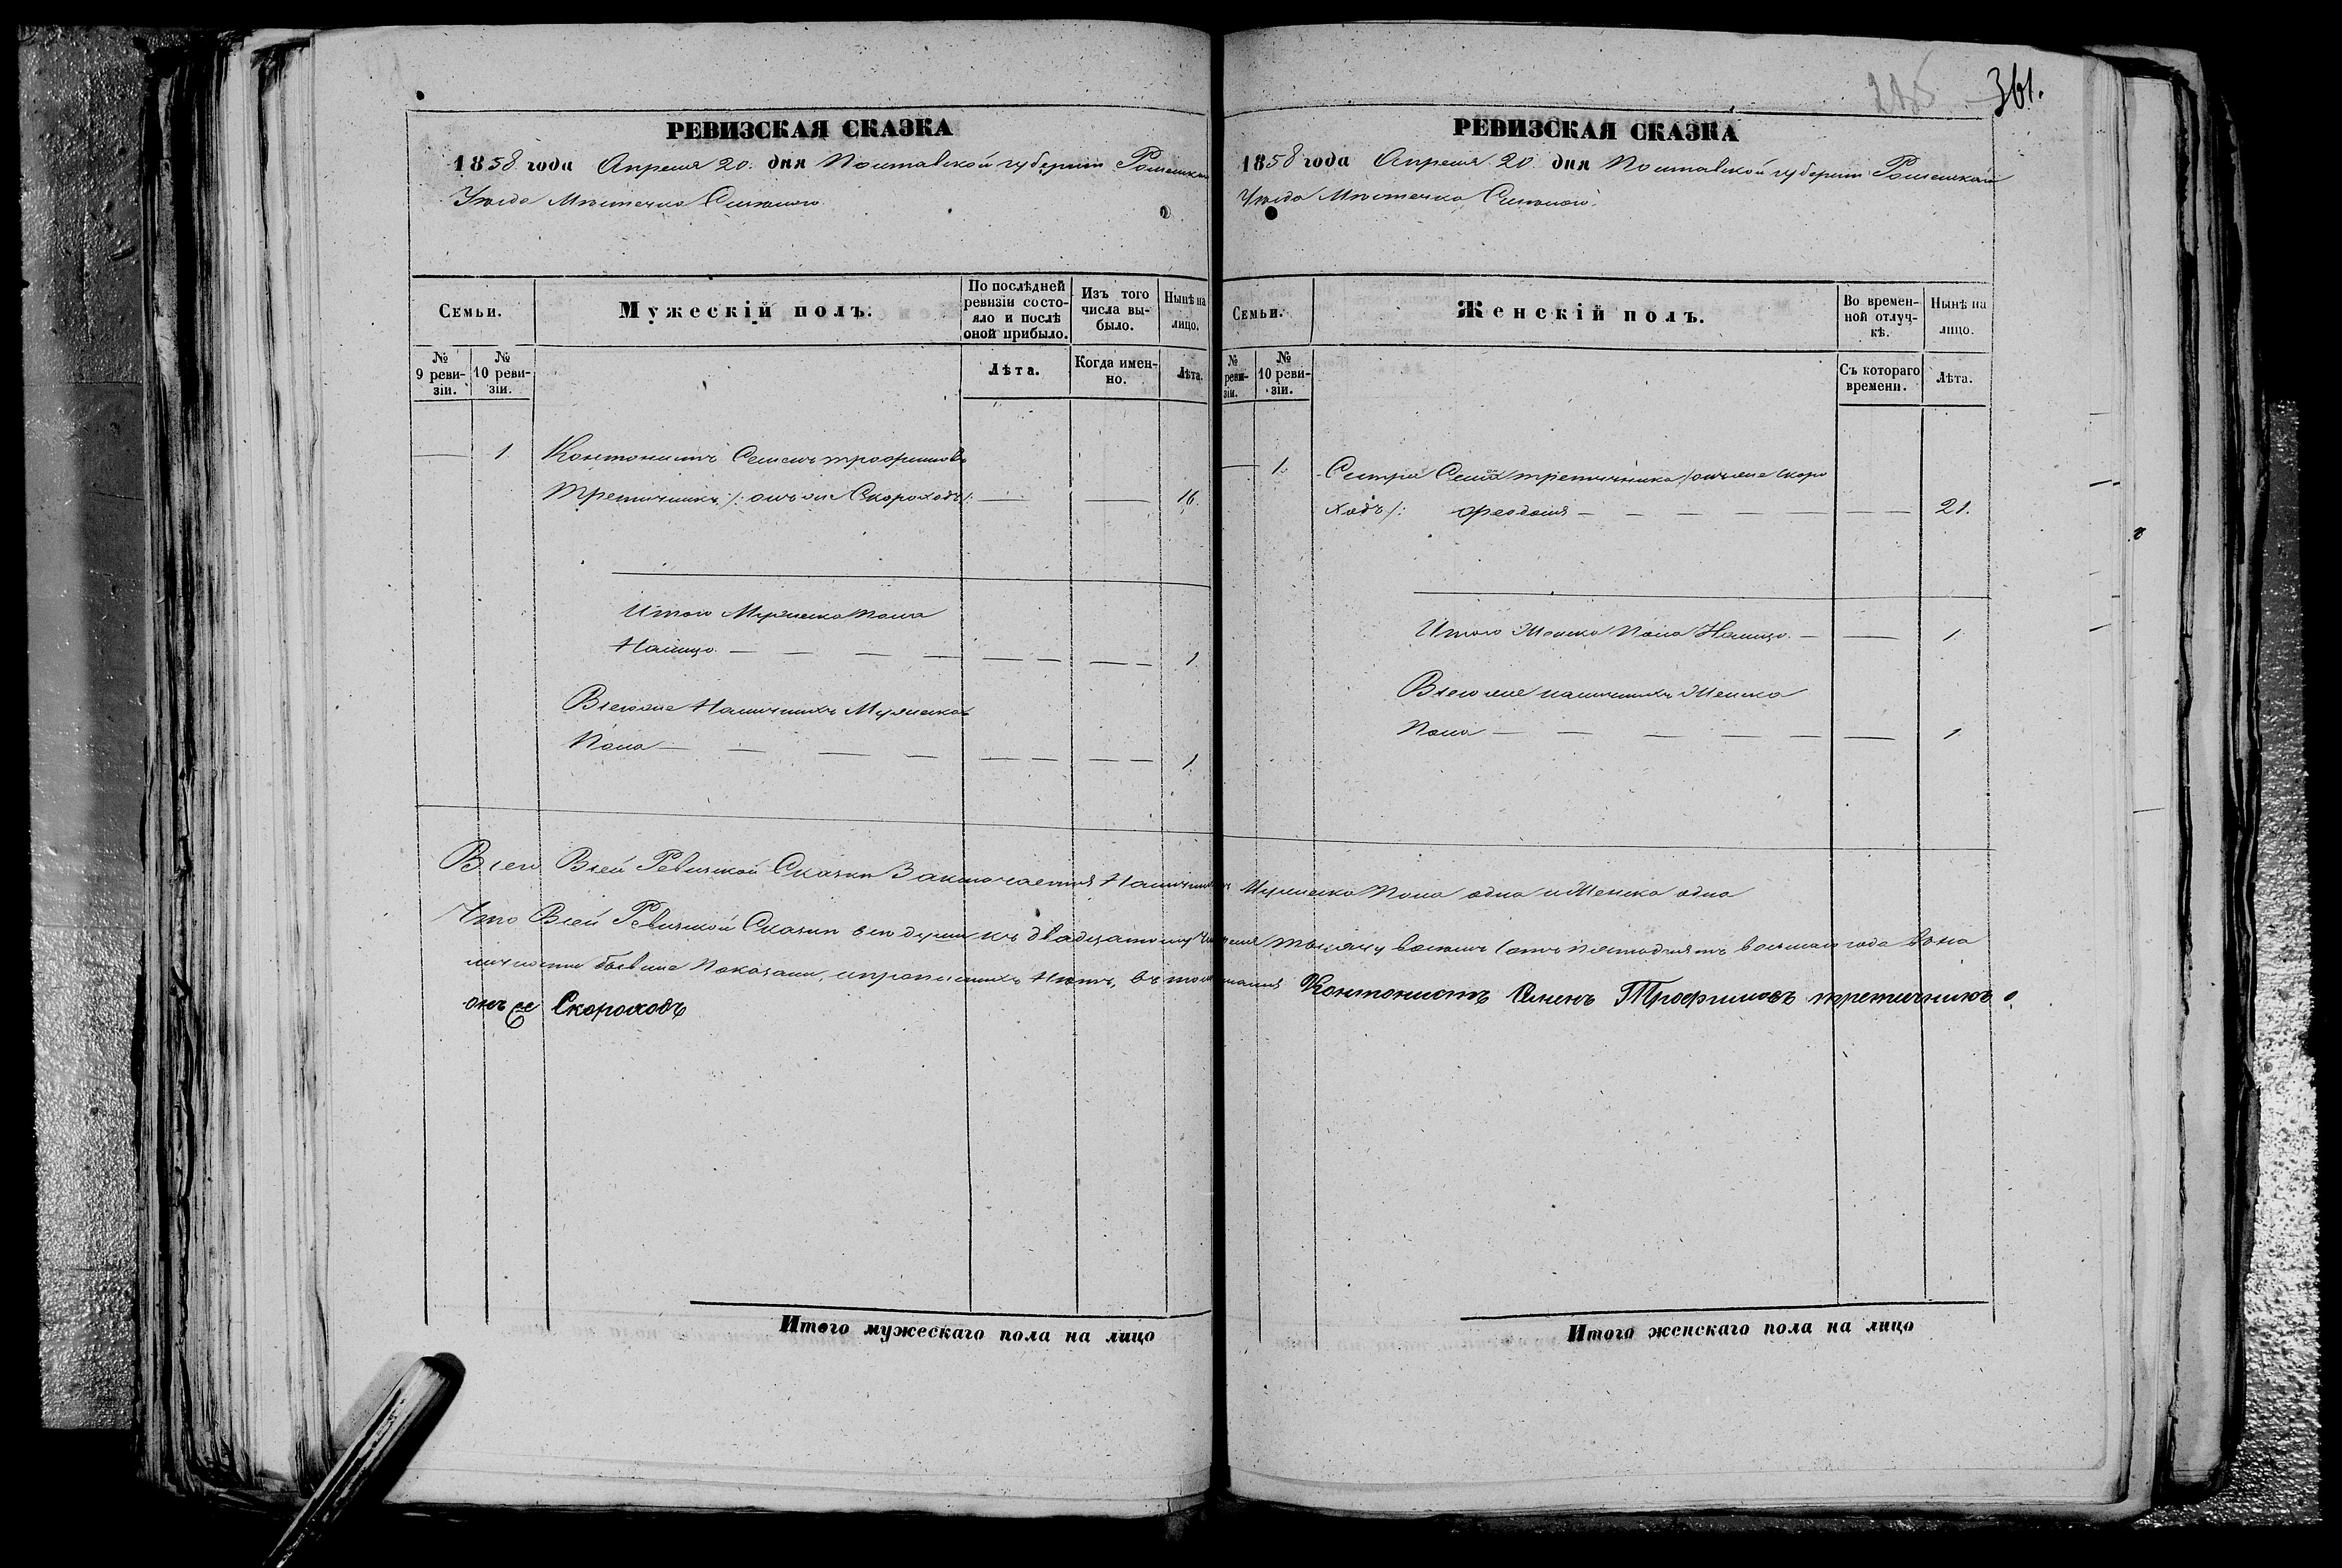 361.
РЕВИЗСКАЯ СКАЗКА
1858 года Апреля 20. дня Полтавской губернии Роменскаго
Уезда Мѣстечка Смѣлого
Семьи.
Мужескій полъ.
По послѣдней ревизіи состояло и послѣ оной прибыло.
Изъ того числа выбыло.
Нынѣ на лицо.
№ 9 ревизіи.
№ 10 ревизіи.
Лѣта.
Когда именно.
Лѣта.
1 Кантонистъ Семенъ Трофимовъ
Третичникъ /: онъ же Скороходъ /: — — 16.
Итого Мужеска пола
Налицо — — — — — — — — 1
Всего же Наличныхъ Мужеска
Пола — — — — — — — — 1.
РЕВИЗСКАЯ СКАЗКА
1858 года Апреля 20 дня Полтавской губернии Роменскаго
Уезда Мѣстечка Смѣлого.
Семьи.
Женскій полъ.
Во временной отлучкѣ.
Нынѣ на лицо.
№ ревизіи.
№ 10 ревизіи.
Съ котораго времени.
Лѣта.
— 1. Сестра Семена Третичника /: онъ же Скоро
ходъ /: Феодосия — — — — — — 21.
Итого Женска Пола Налицо — — 1
Всего же наличныхъ Женска
Пола — — — — — — 1
Всего Всей Ревизской Сказки Заключается Наличныхъ Мужеска Пола одна и Женска одна
Что Всей Ревизской Сказки все души къ двадцатому Апреля тысячу восемь сотъ пятьдесятъ восьмаго года в на
личности бывшие Показани, и прописныхъ Нѣтъ, въ томъ Кантонистъ Семенъ Трофимовъ третичникъ
онъ же Скороходъ
Итого мужескаго пола на лицо
Итого женскаго пола на лицо